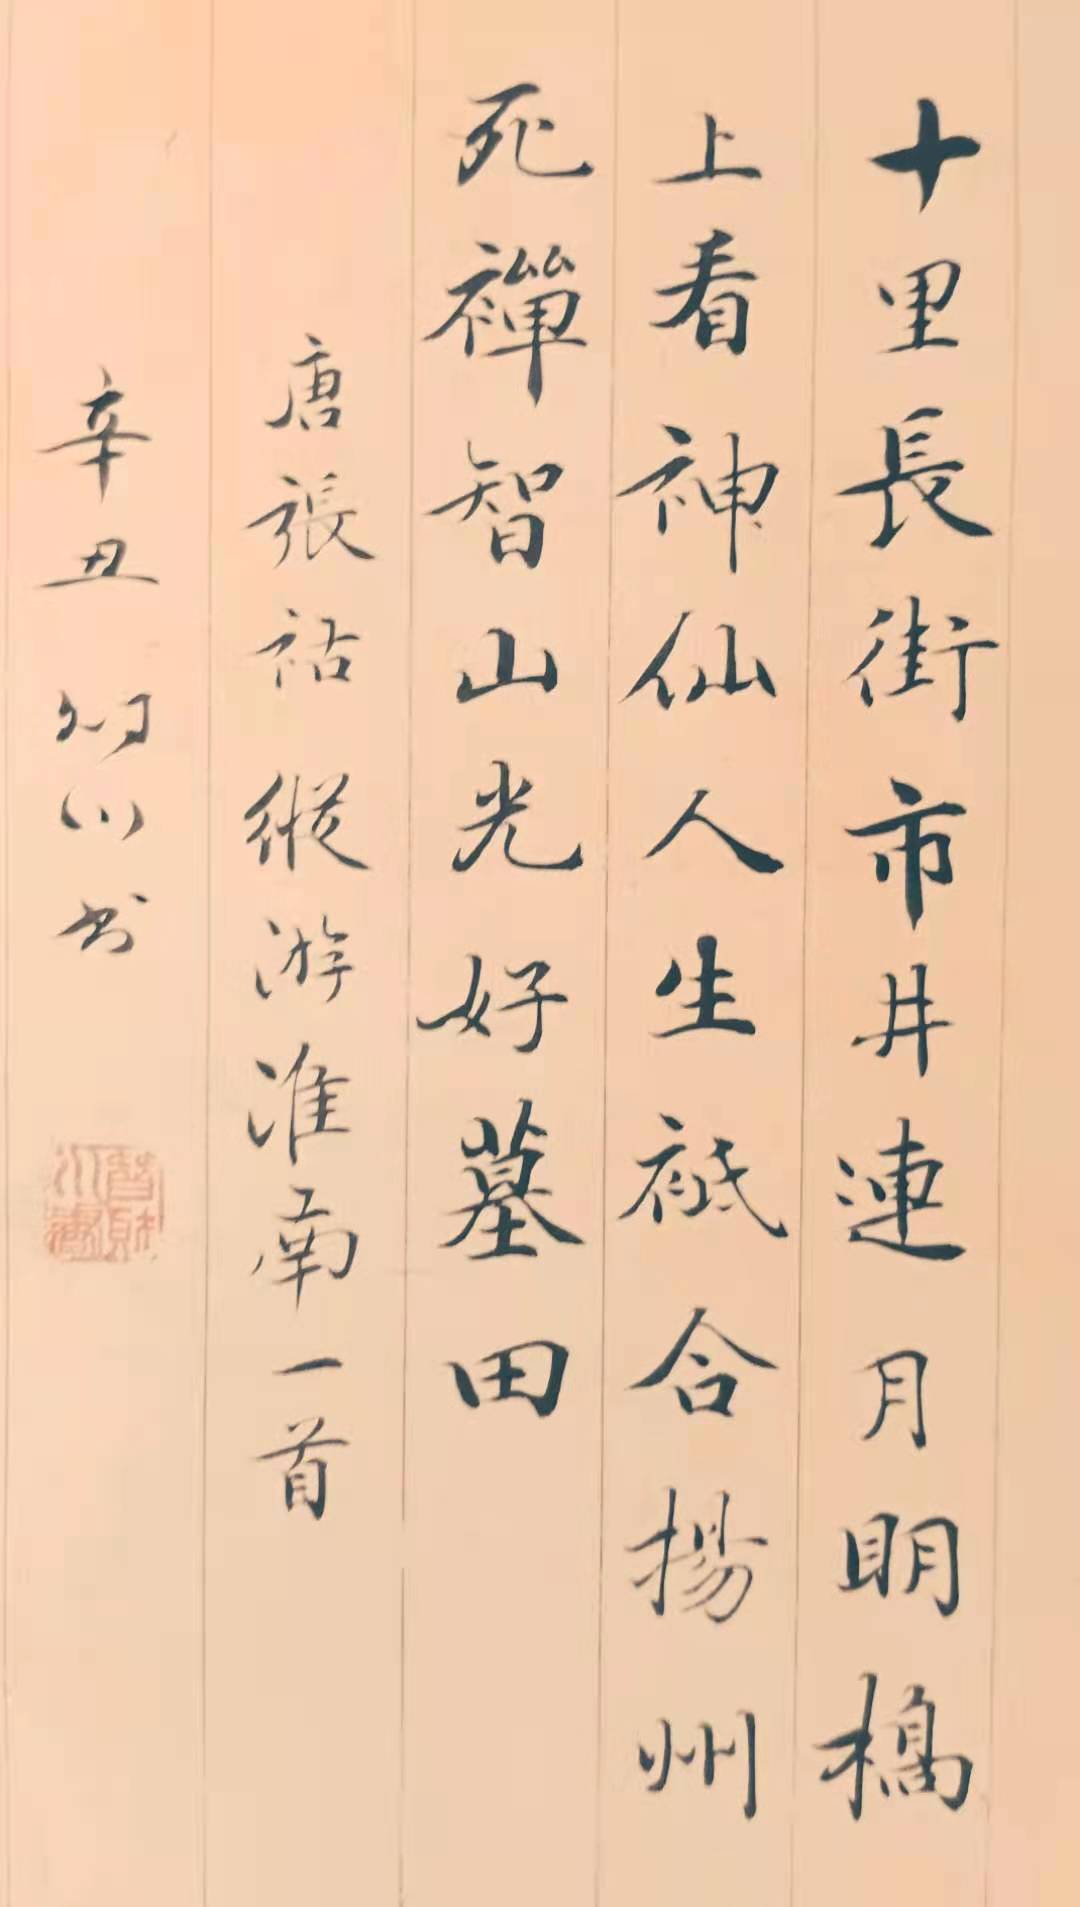 十里長街市井連月明橋
上看神仙人生祗合揚州
死禪智山光好墓田
唐張祜縱游淮南一首
辛丑 川书